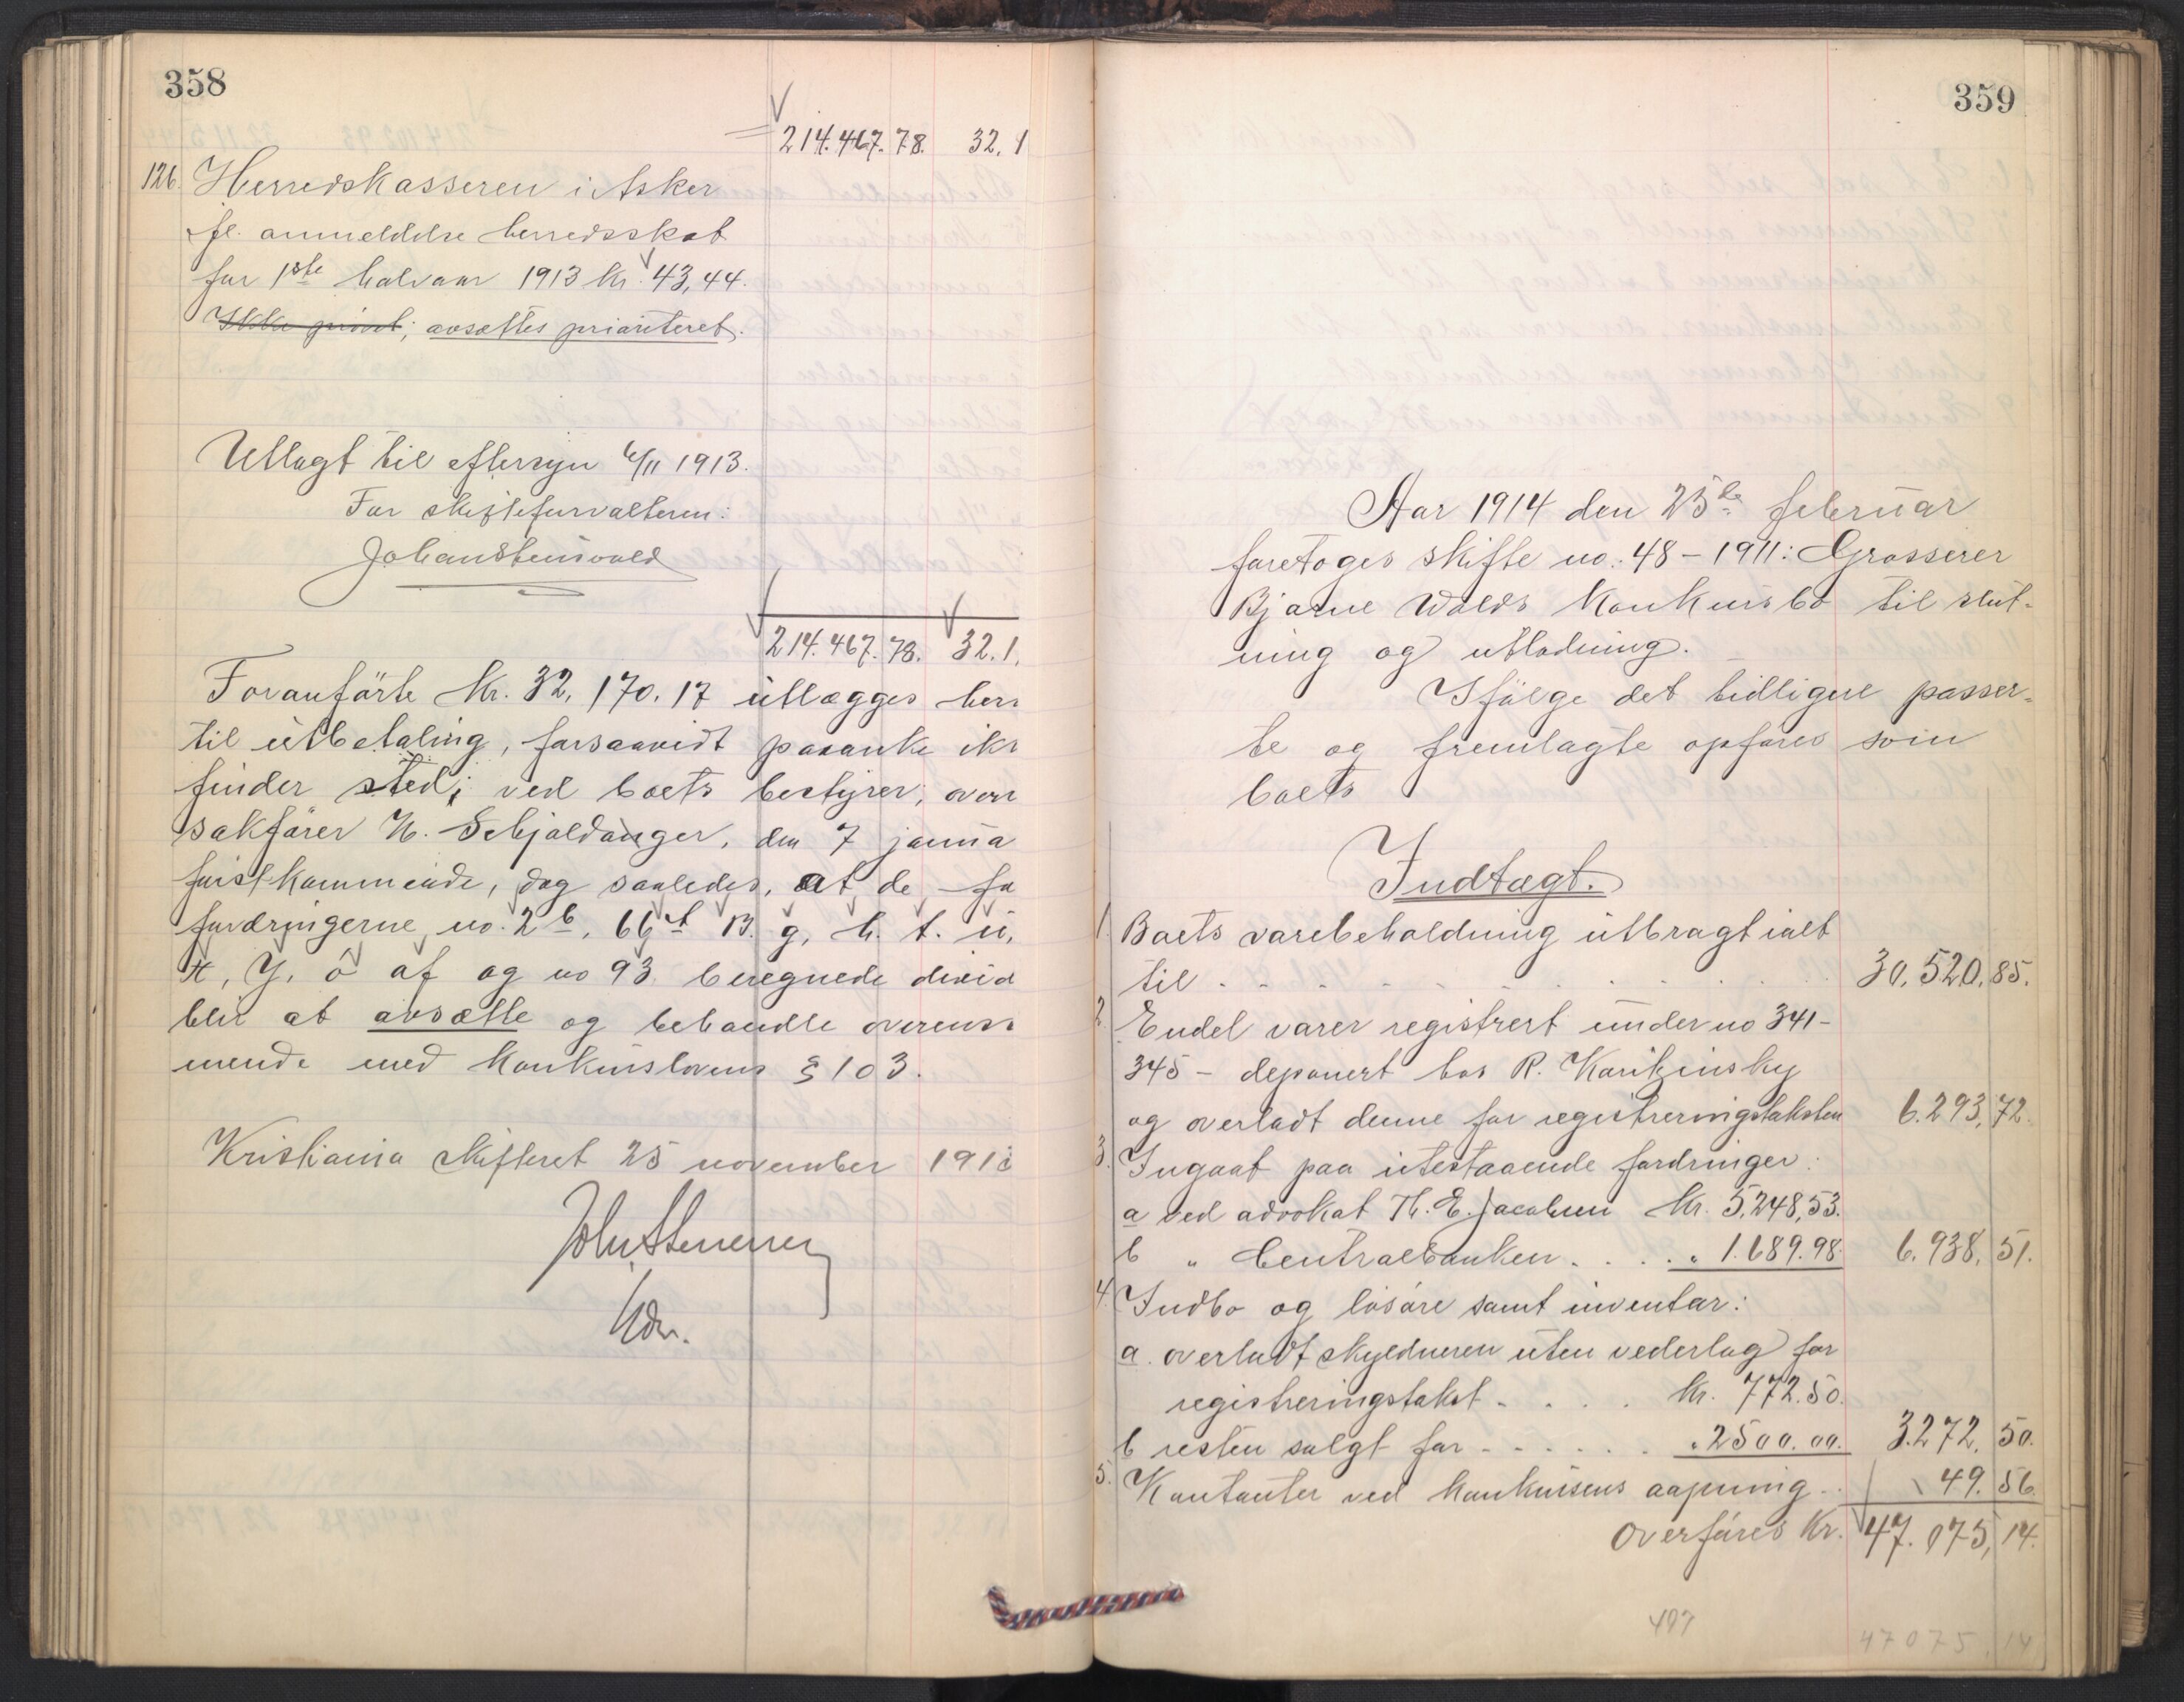 358
214.467.78. 32.1
126. Herredskasseren i Asker
fl. anmeldelse herredsskat
for 1ste halvaar 1913 kr. 43,44.
Ikke priorit; avsættes prioriteret.
Utlagt til eftersyn 6/11 1913.
For skifteforvalteren:
Johan Stenvold
214.467.78. 32.1.
Foranførte kr. 32,170.17 utlægges her
til utbetaling, forsaavidt paaanke ik
finder sted, ved boets bestyrer, over
sakfører H. Schjoldager, den 7 janua
førstkommende, dog saaledes, at de fo
fordringerne no. 2 b, 66 B. g, h. t. ü.
Y, ö af og no 93 beregnede divid
blir at avsætte og behandle overens
mende med konkurslovens § 103.
Kristiania skifteret 25 november 191
359
Aar 1914 den 25de februar
foretoges skifte no. 48-1911: Grosserer
Bjarne Wolds konkursbo til slut-
ning og utlodning.
Ifølge det tidligere passer-
te og fremlagte opføres som
boets
Indtægt.
1. Boets varebeholdning utbragt ialt
til - - - - - 30.520,85.
2. Endel varer registrert under no 341-
345 - deponert hos R. Karikinsky
og overladt denne for registreringstaksten 6.293,72.
3. Ingaat paa utestaaende fordringer:
a ved advokat Th. E. Jacobsen kr. 5,248,53.
b " Centralbanken . . . . " 1.689.98. 6.938,51.
4. Indbo og løsøre samt inventar:
a. overladt skyldneren uten vederlag for
registreringstakst - . . . kr. 772.50.
b resten solgt for - - - - . . " 2500.00. 3.272,50.
5. Kontanter ved konkursens aapning . . 49.56
Overføres Kr. 47.075,14.
497
47075.14